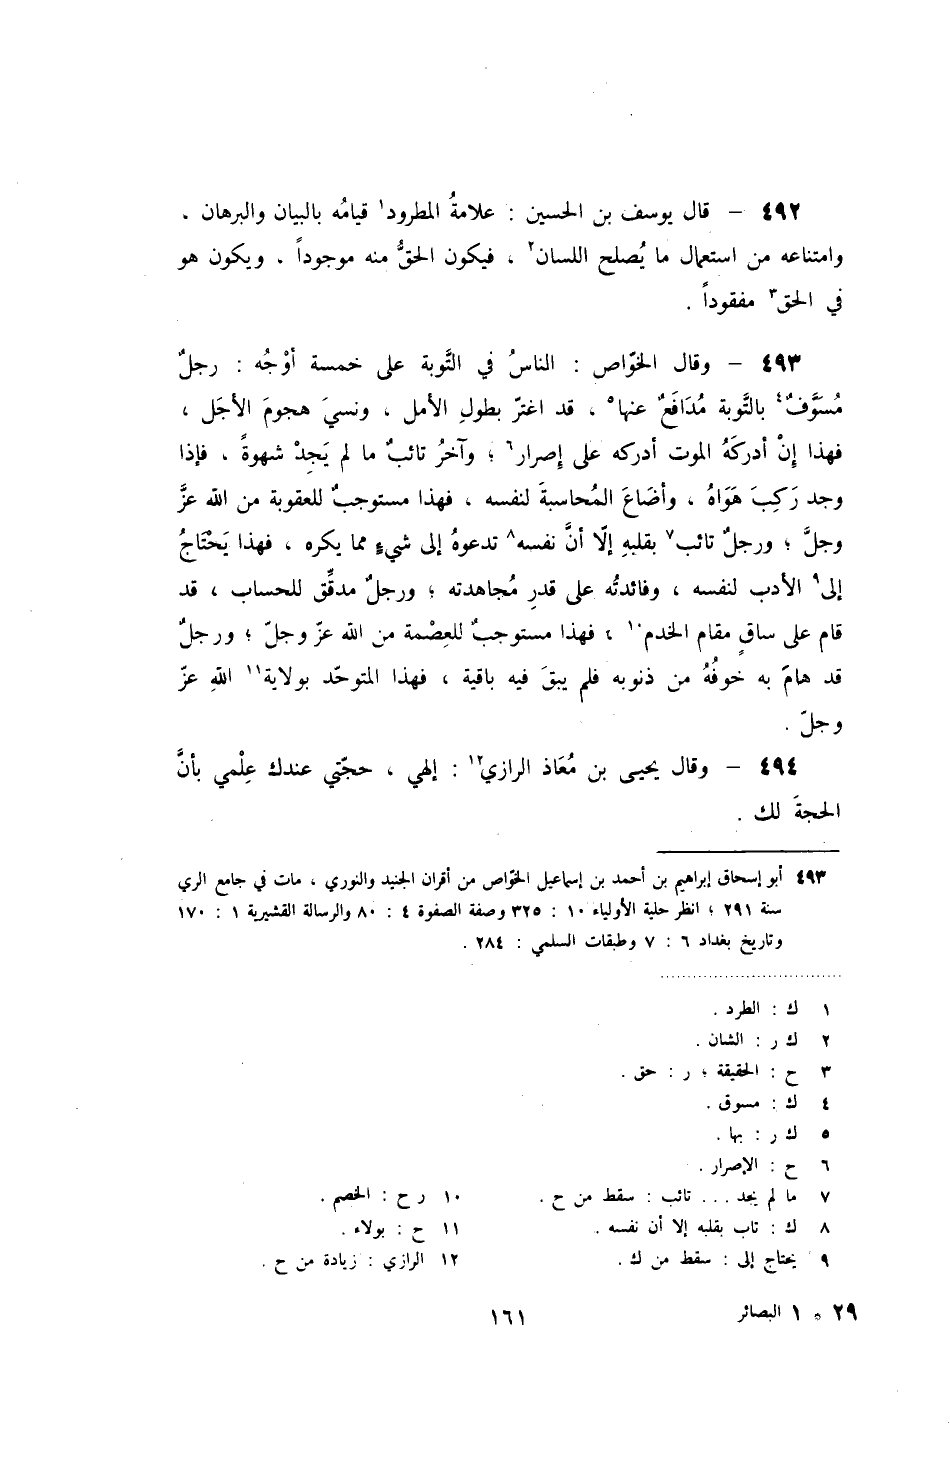 ٤٩٢ – قال يوسف بن الحسين : علامةُ المطرود١ قيامُه بالبيان والبرهان ،
وامتناعه من استعمال ما يُصلح اللسان٢ ، فيكون الحقُّ منه موجوداً ، ويكون هو
في الحق٣ مفقوداً .
٤٩٣ – وقال الخوّاص : الناسُ في التَّوبة على خمسة أوْجُه : رجلٌ
مُسَوَّفٌ٤ بالتَّوبة مُدَافَعٌ عنها٥ ، قد اغترّ بطولِ الأمل ، ونسيَ هجومَ الأجَل ،
فهذا إنْ أدركَهُ الموت أدركه على إصرار٦ ؛ وآخرُ تائبٌ ما لم يَجِدْ شهوةً ، فإذا
وجد رَكِبَ هَوَاهُ ، وأضَاعَ المُحاسبةَ لنفسه ، فهذا مستوجبٌ للعقوبة من الله عزَّ
وجلَّ ؛ ورجلٌ تائب٧ بقلبهِ إلّا أنَّ نفسه٨ تدعوهُ إلى شيءٍ مما يكره ، فهذا يَحْتَاجُ
إلى٩ الأدب لنفسه ، وفائدتُه على قدرِ مُجاهدته ؛ ورجلٌ مدقِّق للحساب ، قد
قام على ساقٍ مقام الخدم١٠ ، فهذا مستوجبٌ للعِصْمة من الله عزّ وجلّ ؛ ورجلٌ
قد هامَ به خوفُهُ من ذنوبه فلم يبقَ فيه باقية ، فهذا المتوحّد بولاية١١ اللهِ عزّ
وجلّ .
٤٩٤ – وقال يحيى بن مُعَاذ الرازي١٢ : إلهي ، حجّتي عندك عِلْمي بأنَّ
الحجةَ لك .
٤٩٣ أبو إسحاق إبراهيم بن أحمد بن إسماعيل الخواص من أقران الجنيد والنوري ، مات في جامع الري
سنة ٢٩١ ؛ انظر حلية الأولياء ١٠ : ٣٢٥ وصفة الصفوة ٤ : ٨٠ والرسالة القشيرية ١ : ١٧٠
وتاريخ بغداد ٦ : ٧ وطبقات السلمي : ٢٨٤ .
١ ك : الطرد .
٢ ك ر : الشان .
٣ ح : الحقيقة ؛ ر : حق .
٤ ك : مسوق .
٥ ك ر : بها .
٦ ح : الإصرار .
٧ ما لم يجد ... تائب : سقط من ح .
٨ ك : تاب بقلبه إلا أن نفسه .
٩ يحتاج إلى : سقط من ك .
١٠ ر ح : الخصم .
١١ ح : بولاء .
١٢ الرازي : زيادة من ح .
٢٩ * ١ البصائر
١٦١